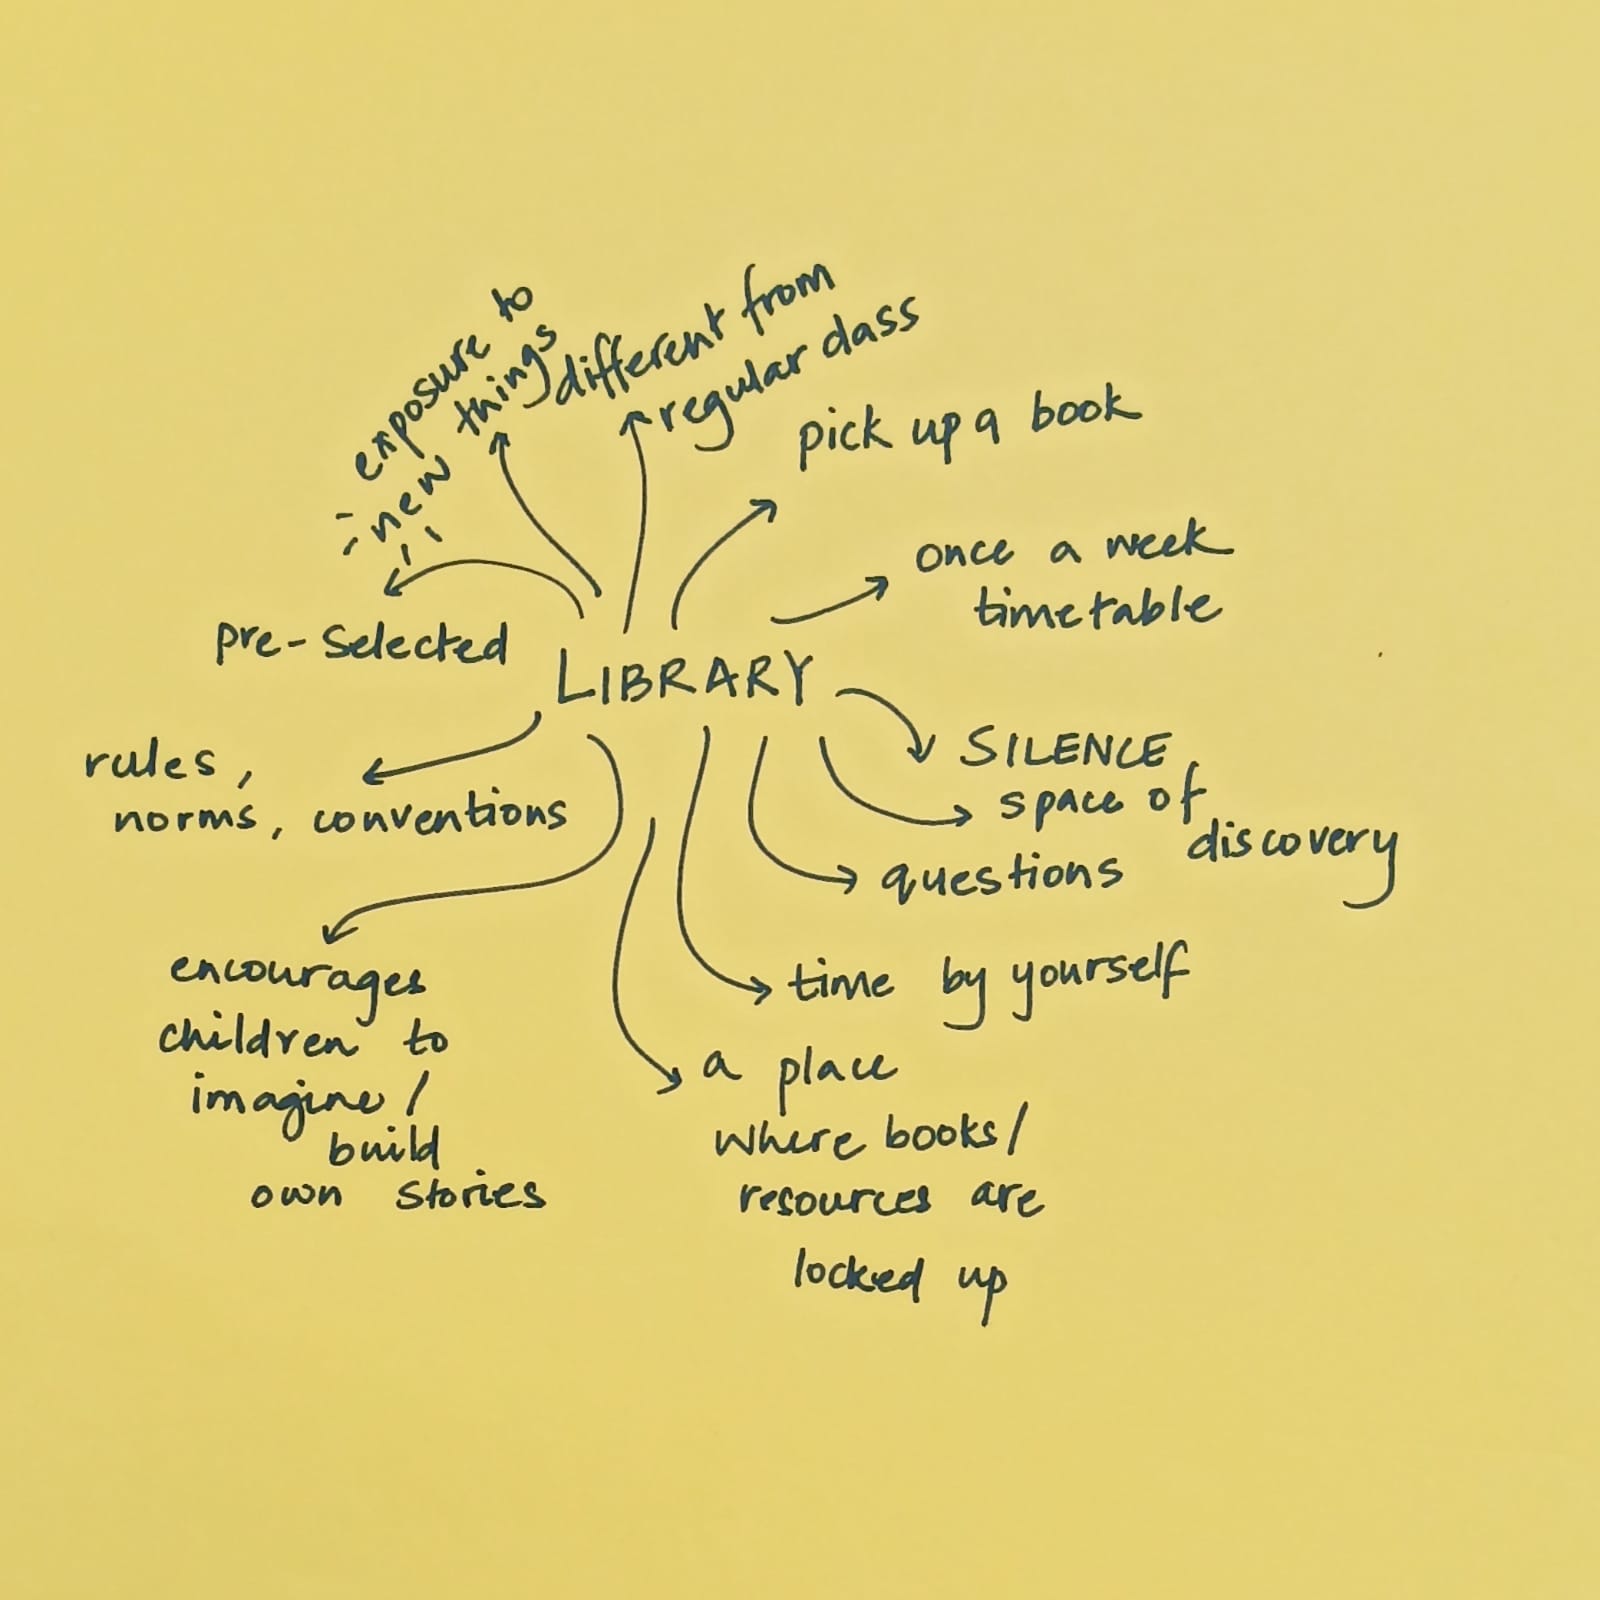 exposure to
new things
different from
regular class
pick up a book
once a week
timetable
pre-selected
LIBRARY
rules,
norms, conventions
SILENCE
space of
discovery
questions
time by yourself
encourages
children to
imagine/
build
own stories
a place
where books/
resources are
locked up